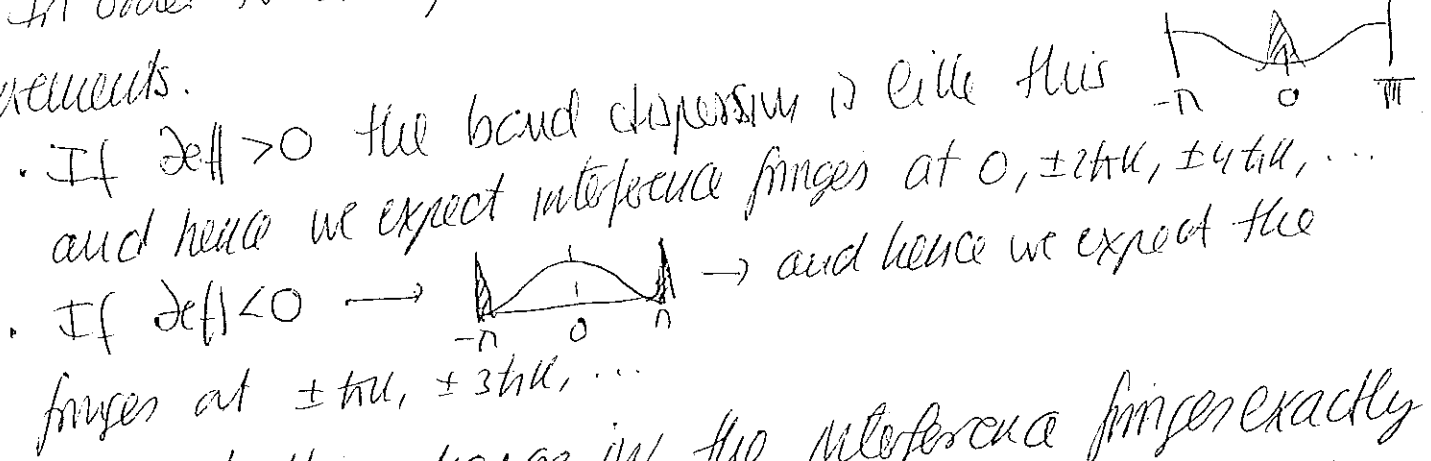 In order to
ements.
-π 0 π
· If Jeff >0 the band dispersion is like this
and hence we expect interference fringes at 0, ±2ħk, ±4ħk, ...
· If Jeff <0 → -π 0 π → and hence we expect the
fringes at ±ħk, ±3ħk, ...
in the interference fringes exactly